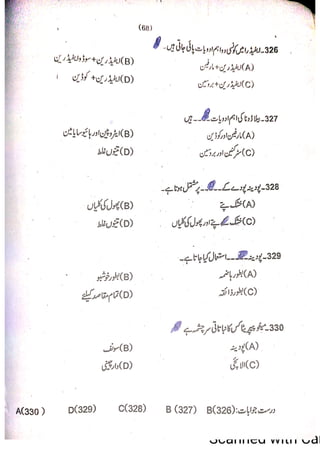 (68)
326- ایفیڈرا میں کونسی دو اہم ادویات پائی جاتی ہیں۔
(A) ایفیڈرین + مارفین (B) ایفیڈرین + سوڈو ایفیڈرین
(C) ایفیڈرین + بروسین (D) ایفیڈرین + کوڈین
327- بلاڈونا کی اہم ادویات ہیں
(A) مارفین اور کوڈین (B) ایٹروپین اور ہائیوسایامین
(C) سٹرکنین اور بروسین (D) تینوں غلط
328- پودینہ پودے کے ۔۔۔ پر مشتمل ہوتا ہے۔
(A) خشک پتے (B) پھول کی کلیاں
(C) خشک پتے اور پھول کی کلیاں (D) تینوں غلط
329- پودینہ ۔۔۔ استعمال کیا جاتا ہے۔
(A) بطور ہاضمہ (B) بطور خوشبو
(C) بطور ذائقہ (D) تمام مقاصد کیلئے
330- مینتھا پیپریٹا کس کا نباتاتی سرچشمہ ہے
(A) پودینہ (B) سونف
(C) الائچی (D) دارچینی
درست جوابات: B(326) B (327) C(328) D(329) A(330 )
Scanned with Ca